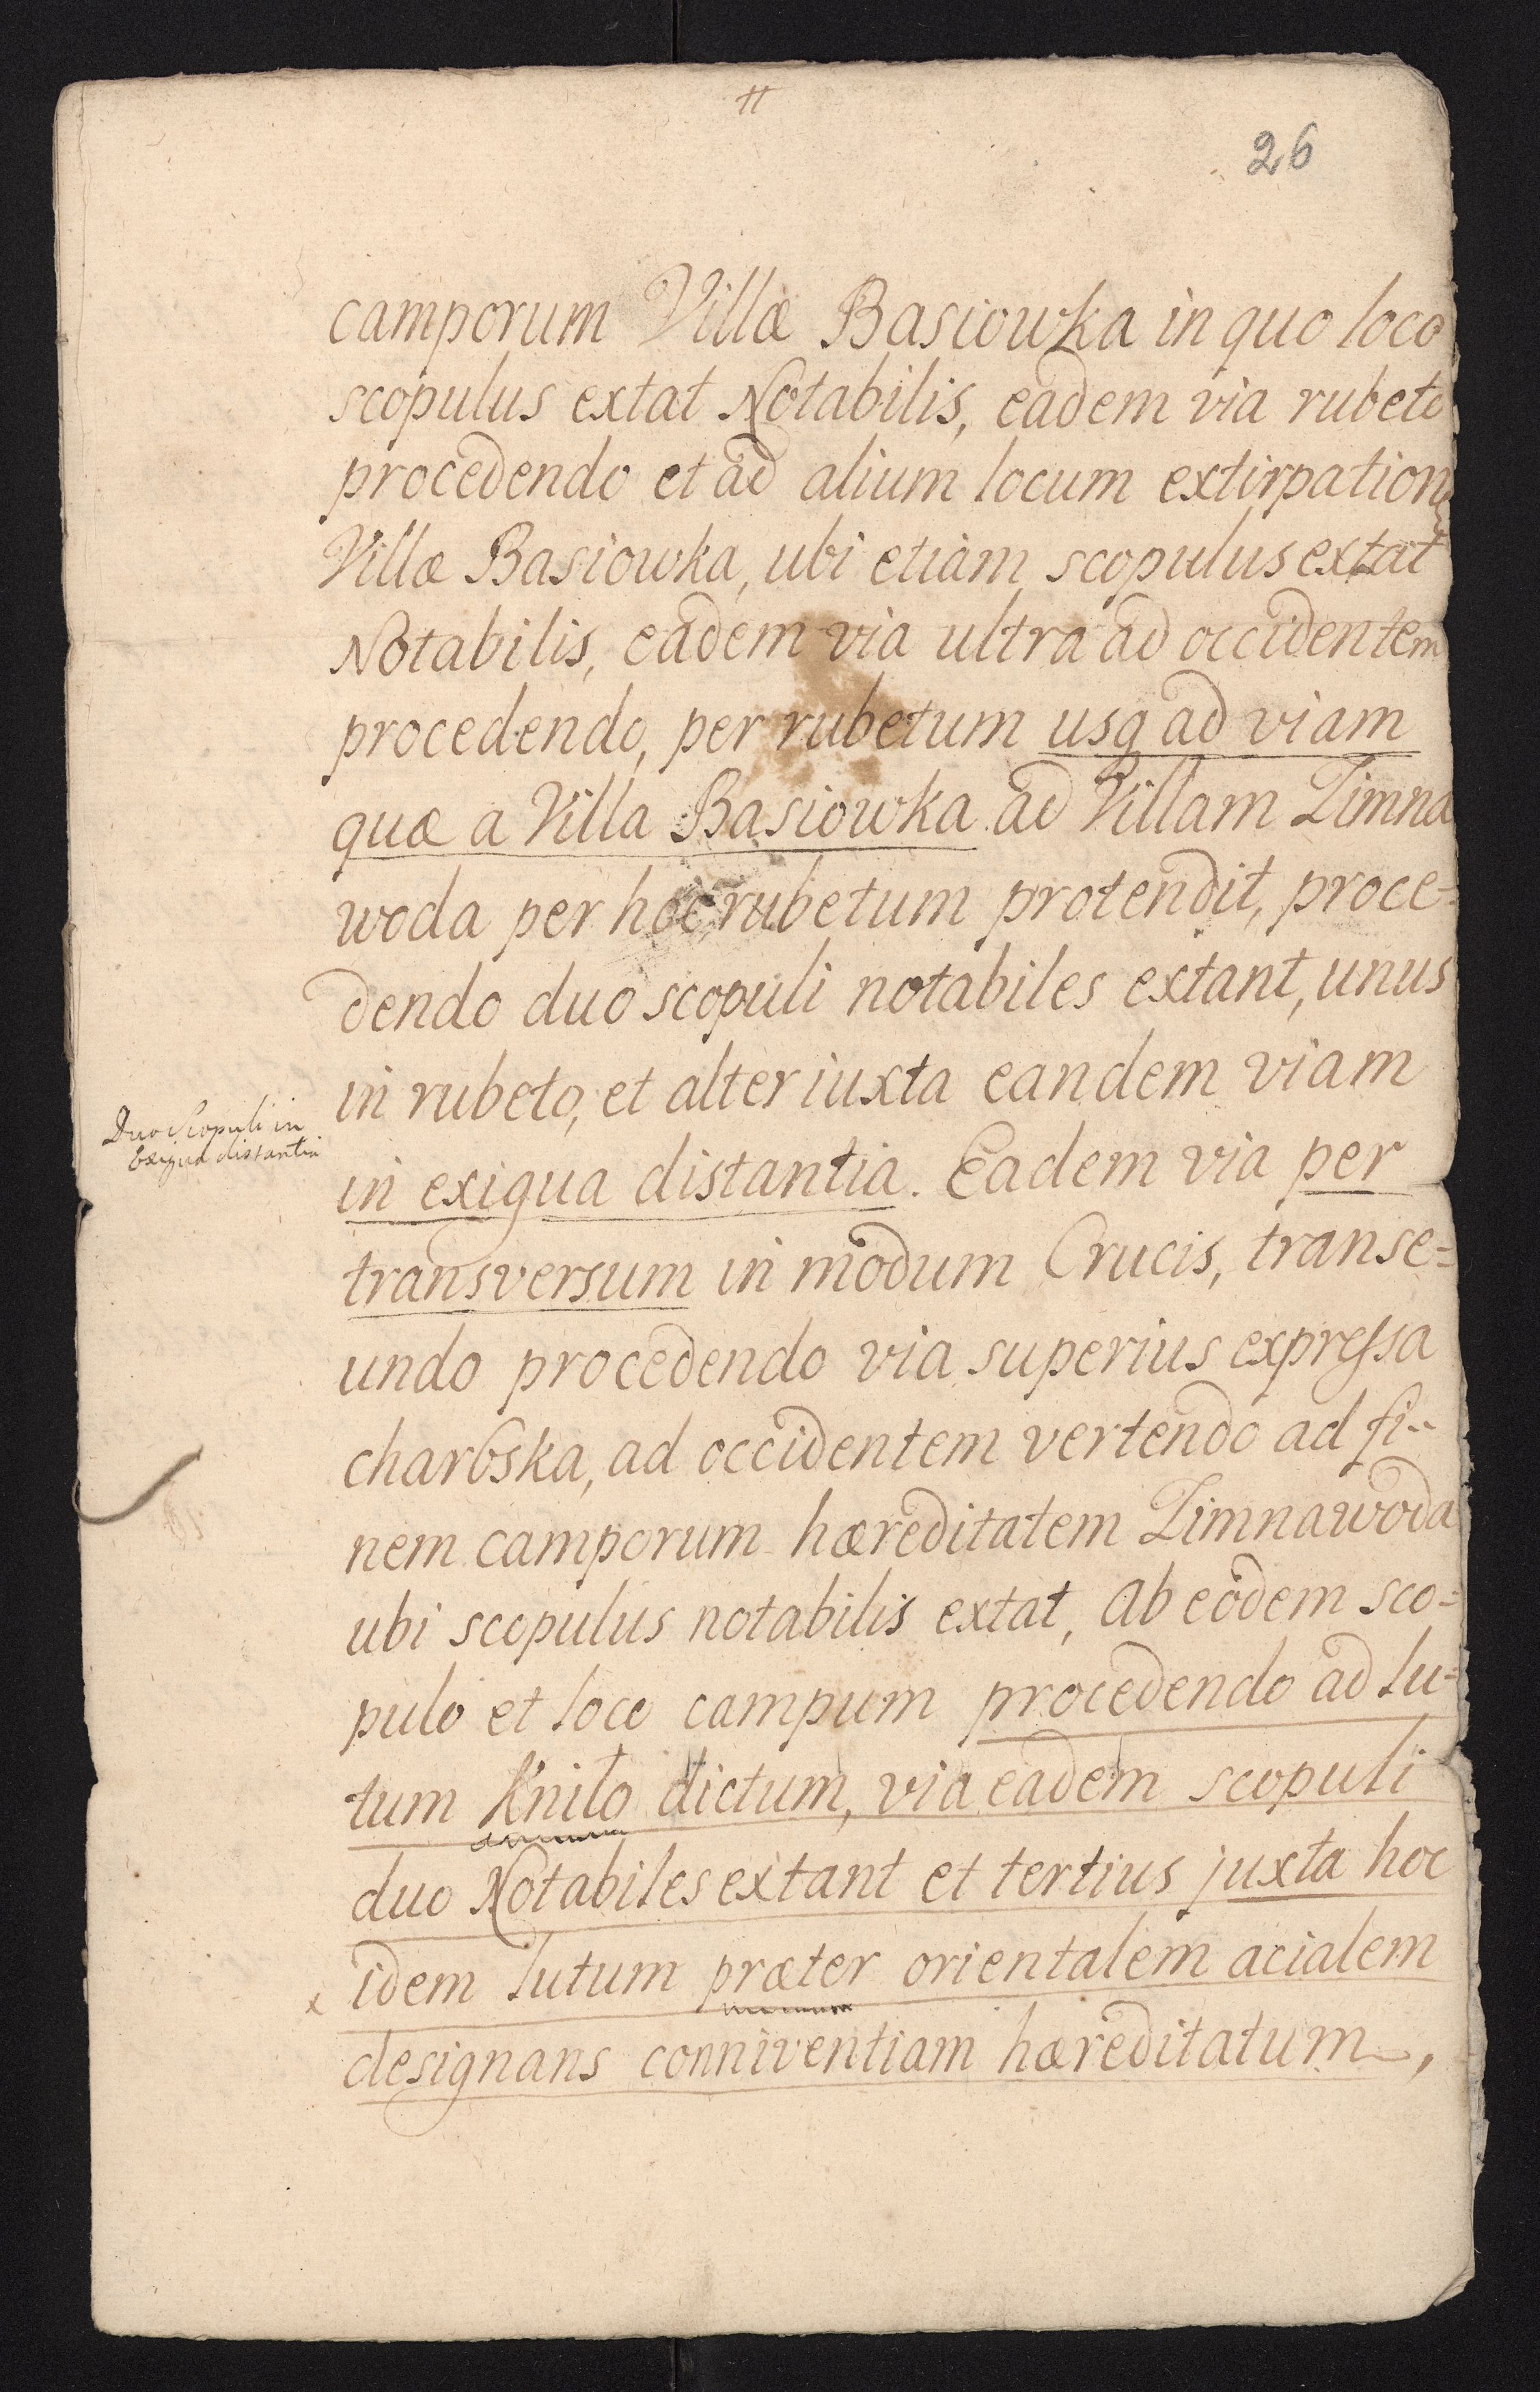 tt
26
camporum Villæ Basiowka in quo loco
scopulus extat Notabilis, eadem via rubeto
procedendo et ad alium locum extirpationis
Villæ Basiowka, ubi etiam scopulus extat
Notabilis, eadem via ultra ad occidentem
procedendo, per rubetum usq ad viam
quæ a Villa Basiowka ad Villam Zimna
woda per hoc rubetum protendit, proce=
dendo duo scopuli notabiles extant, unus
in rubeto, et alter iuxta eandem viam
Duo Scopuli in
Exigua distantia
in exigua distantia. Eadem via per
transversum in modum Crucis, transe=
undo procedendo via superius expressa
charbska, ad occidentem vertendo ad fi=
nem camporum hæreditatem Zimnawoda
ubi scopulus notabilis extat, Ab eodem sco=
pulo et loco campum procedendo ad lu=
tum Knilo dictum, via eadem scopuli
duo Notabiles extant et tertius juxta hoc
x idem lutum præter orientalem acialem
designans conniventiam hæreditatum,